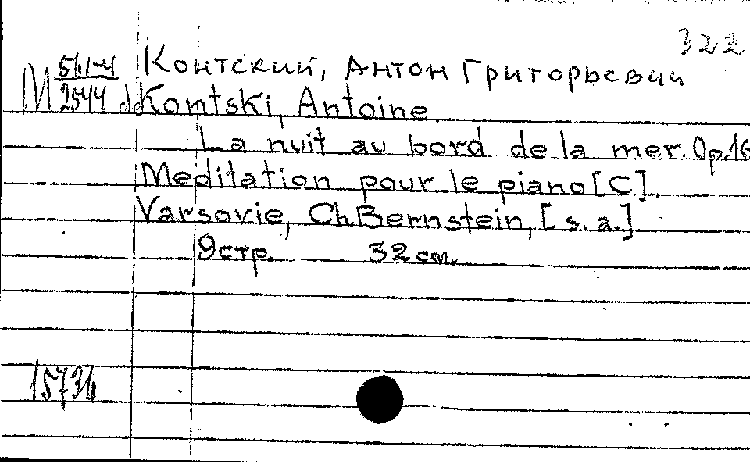 322
Контский, Антон Григорьевич
М 2544 Kontski, Antoine.
La nuit au bord de la mer. Op.16
Meditation pour le piano [C].
Varsovie, Ch. Bernstein, [s.a.]
9 стр. 32 см.